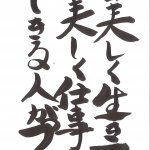 美しく生き
美しく仕事
できる人が